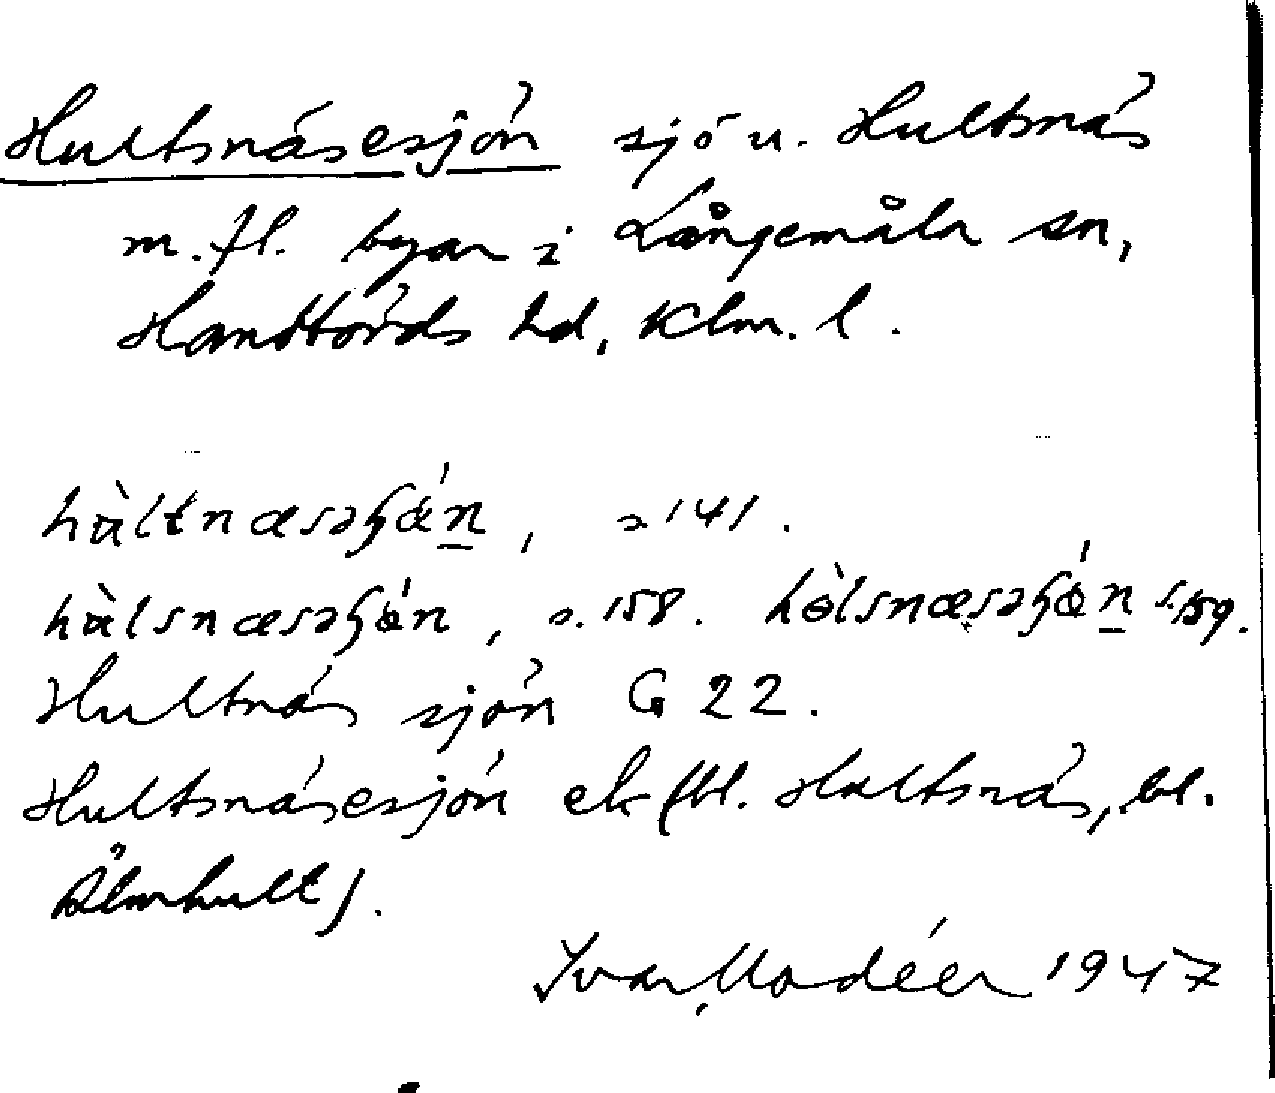 Hultsnäsesjön sjö u. Hultsnäs
m. fl. byar i Långemåla sn,
Handbörds hd, Klm. l.
hùltnæsəɧǿn, s. 141.
hùlsnæsəɧǿn, s. 158. hòlsnæsəɧǿn s. 159.
Hultnäs sjön G 22.
Hultsnäsesjön ek (bl. Hultsnäs, bl.
Älmhult).
Ivar Modéer 1947